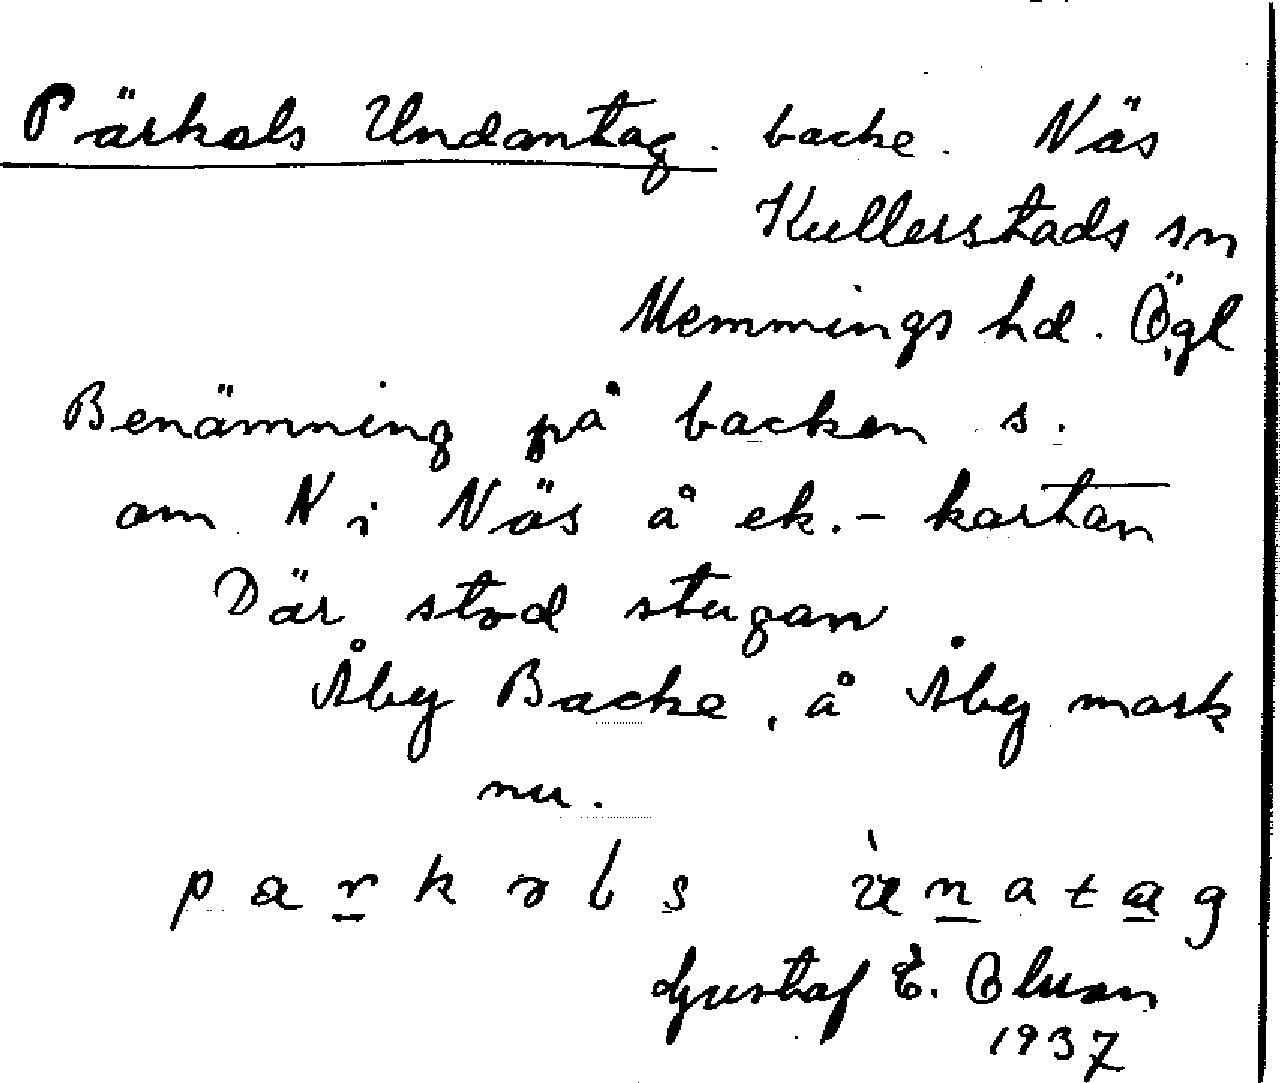 Pärkels Undantag. backe. Näs
Kullerstads sn
Memmings hd. Ögl
Benämning på backen s.
om N i Näs å ek.- kartan
Där stod stugan
Åby Backe, å Åby mark
nu.
Gustaf E. Olsson
1937